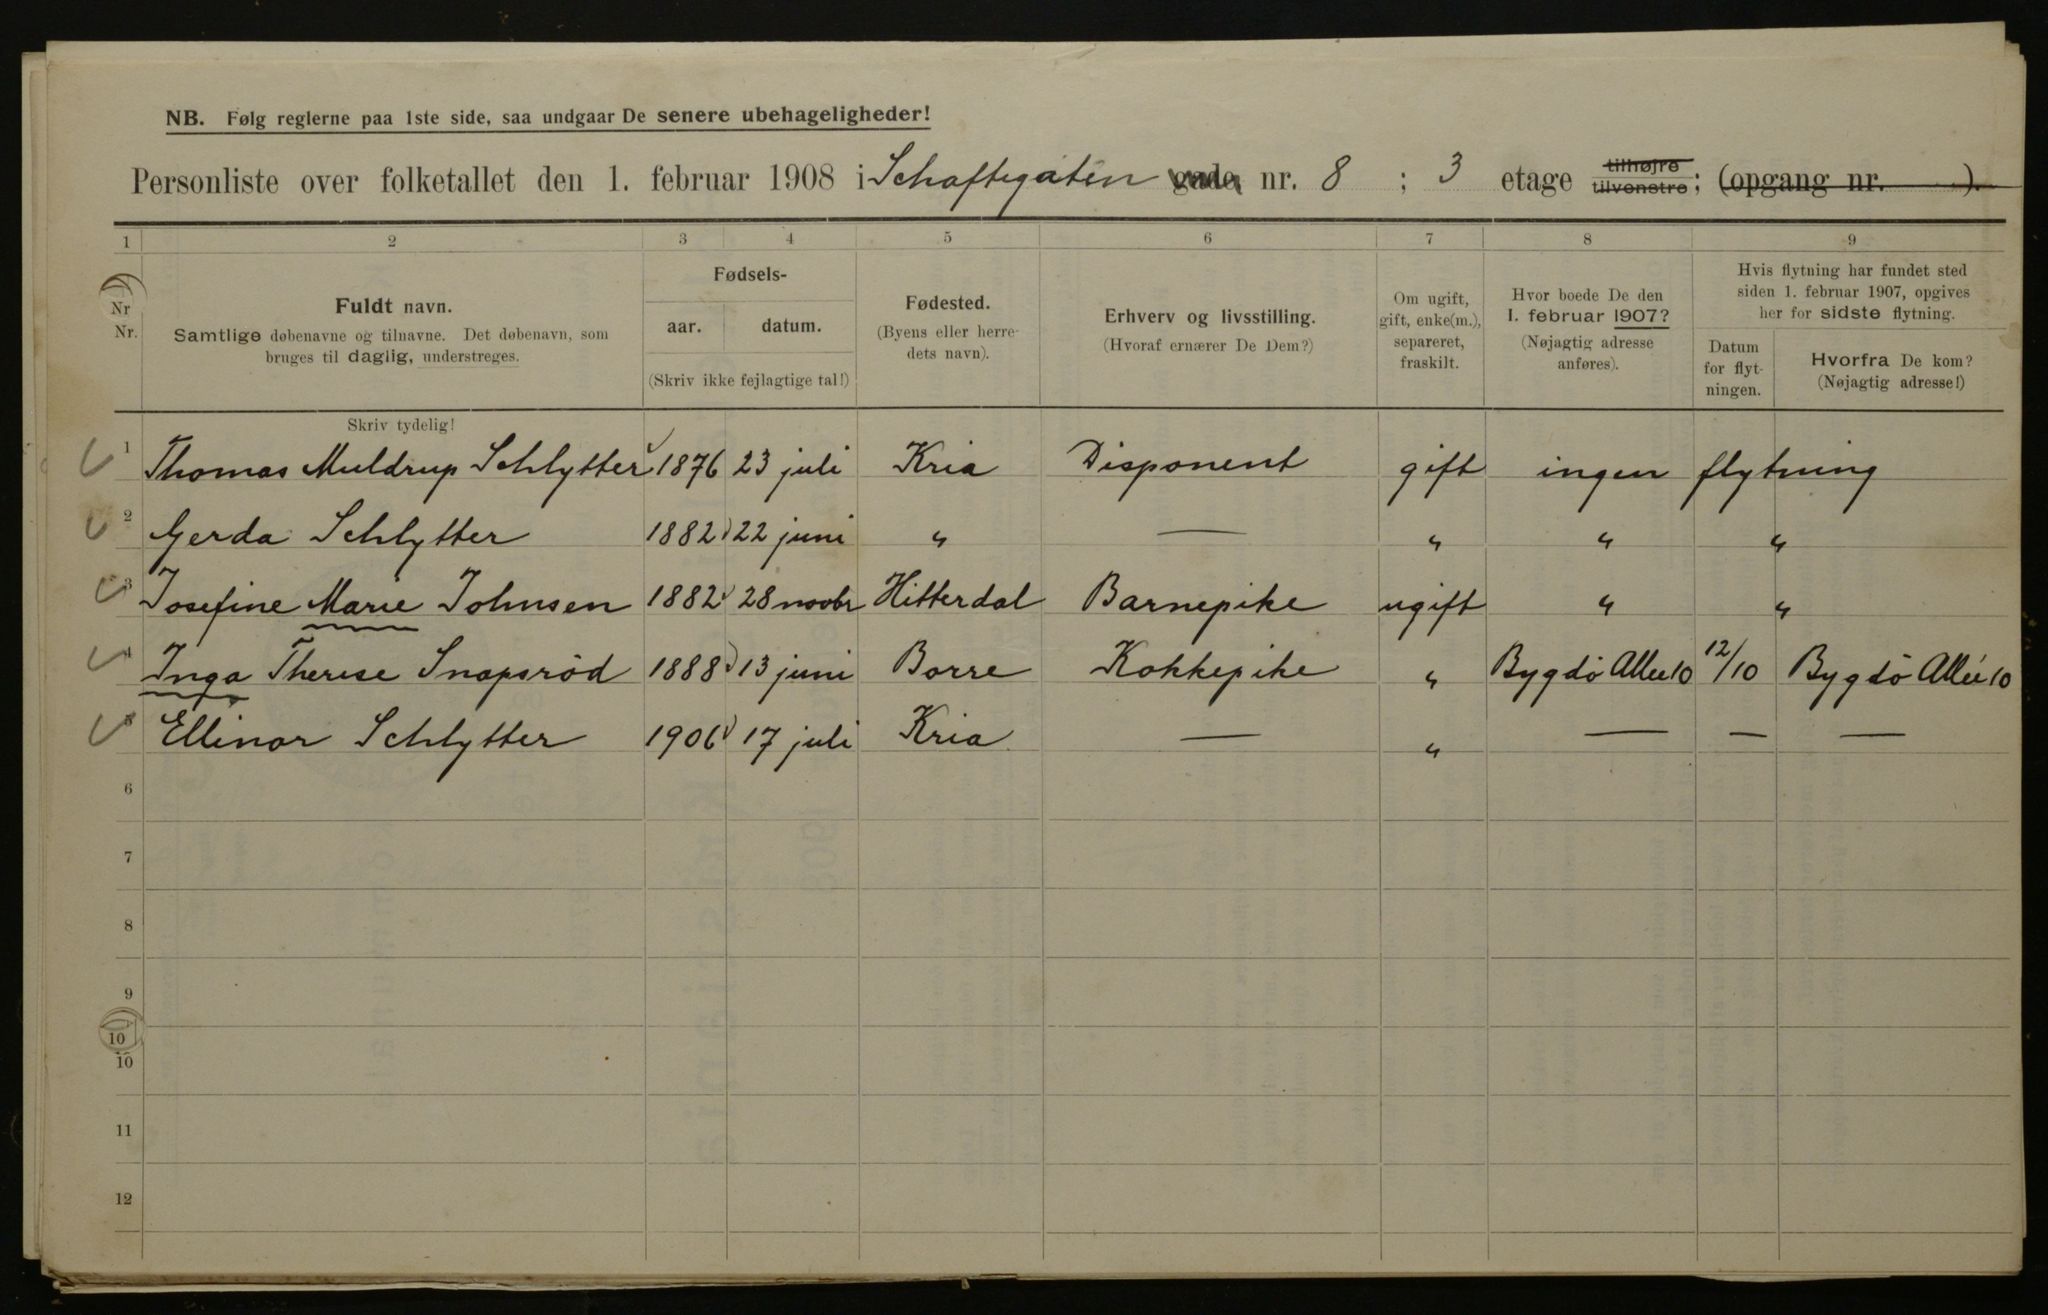 NB. Følg reglerne paa 1ste side, saa undgaar De senere ubehageligheder!
Personliste over folketallet den 1. februar 1908 i Schaftegaten gade nr. 8 ; 3 etage tilhøjre tilvenstre; (opgang nr. ).
1 2 3 4 5 6 7 8 9
Nr Nr.
Fuldt navn.
Samtlige døbenavne og tilnavne. Det døbenavn, som
bruges til daglig, understreges.
Fødsels-
aar. datum.
(Skriv ikke fejlagtige tal!)
Fødested.
(Byens eller herre-
dets navn).
Erhverv og livsstilling.
(Hvoraf ernærer De Dem?)
Om ugift,
gift, enke(m.),
separeret,
fraskilt.
Hvor boede De den
1. februar 1907?
(Nøjagtig adresse
anføres).
Hvis flytning har fundet sted
siden 1. februar 1907, opgives
her for sidste flytning.
Datum
for flyt-
ningen.
Hvorfra De kom?
(Nøjagtig adresse!)
Skriv tydelig!
1 Thomas Muldrup Schlytter 1876 23 juli Kria Disponent gift ingen flytning
2 Gerda Schlytter 1882 22 juni " — " " "
3 Josefine Marie Johnsen 1882 28 novbr Hitterdal Barnepike ugift " "
4 Inga Therese Snapsröd 1888 13 juni Borre Kokkepike " Bygdö Allee 10 12/10 Bygdö Allé 10
5 Ellinor Schlytter 1906 17 juli Kria — " — — —
6
7
8
9
10
10
11
12